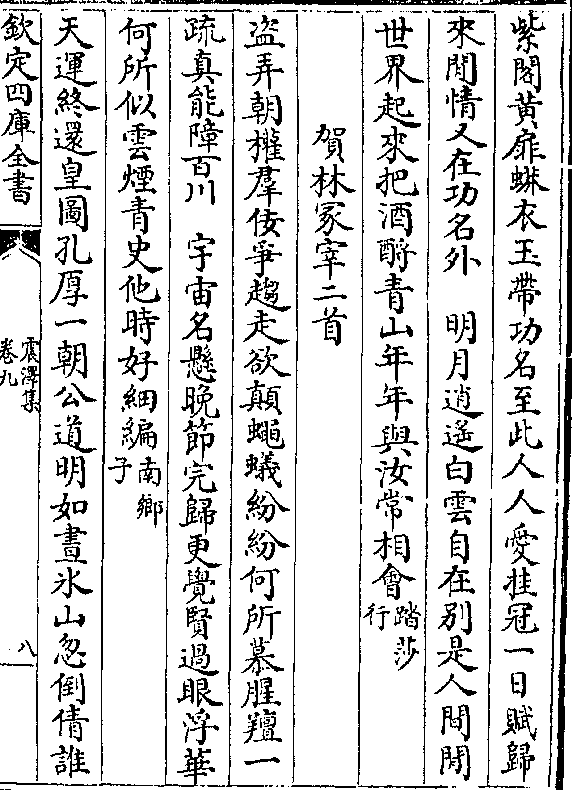 紫閣黃扉蟒衣玉帶功名至此人人愛挂冠一日賦歸
來閒情又在功名外　明月逍遙白雲自在别是人間閒
世界起來把酒酹青山年年與汝常相會踏莎行
賀林冢宰二首
盗弄朝權羣佞爭趨走欲顛蠅蟻紛紛何所慕腥羶一
疏真能障百川　宇宙名懸晚節完歸更覺賢過眼浮華
何所似雲煙青史他時好細編南鄉子
天運終還皇圖孔厚一朝公道明如晝氷山忽倒倩誰
欽定四庫全書
震澤集
卷九
八